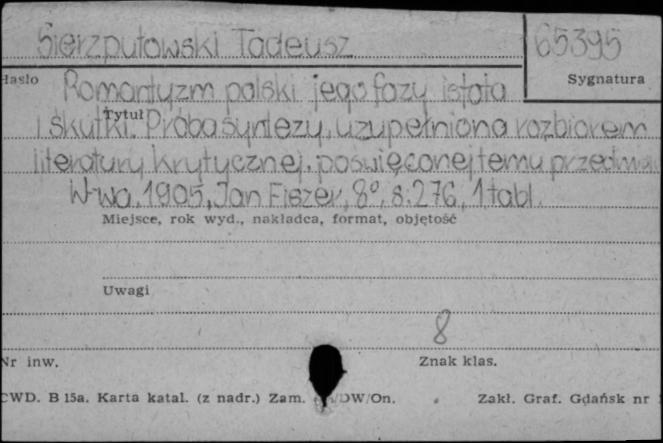 Sierzputowski Tadeusz 65395
Hasło Sygnatura
Romantyzm polski jego fazy istota
Tytuł
i skutki. Próba syntezy, uzupełniona rozbiorem
literatury krytycznej, poświęconej temu przedmio
W-wa. 1905, Jan Fiszer, 8°, s. 276, 1 tabl.
Miejsce, rok wyd., nakładca, format, objętość
Uwagi
8
Nr inw. Znak klas.
CWD. B 15a. Karta katal. (z nadr.) Zam. /DW/On. Zakł. Graf. Gdańsk nr